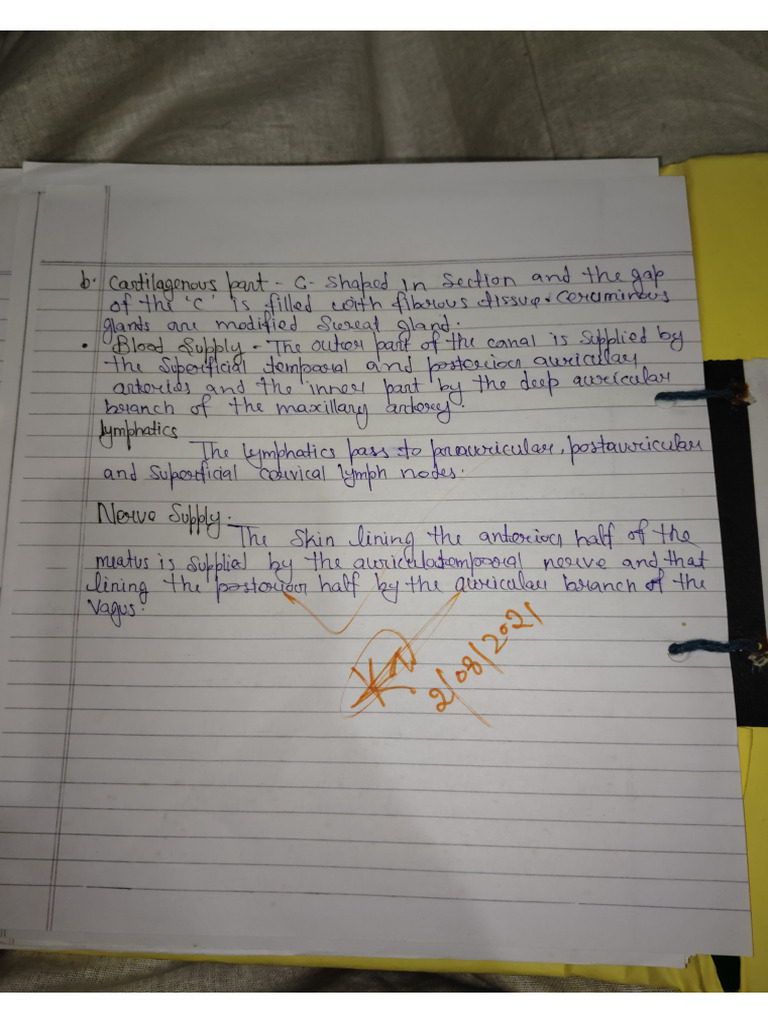 b. Cartilagenous part - C- shaped in section and the gap
of the 'C' is filled with fibrous tissue. Ceruminous
glands are modified sweat gland.
• Blood Supply - The outer part of the canal is supplied by
the superficial temporal and posterior auricular
arteries and the inner part by the deep auricular
branch of the maxillary artery.
lymphatics
The lymphatics pass to preauricular, postauricular
and superficial cervical lymph nodes.
Nerve Supply.
The skin lining the anterior half of the
meatus is supplied by the auriculotemporal nerve and that
lining the posterior half by the auricular branch of the
vagus.
2/08/2021